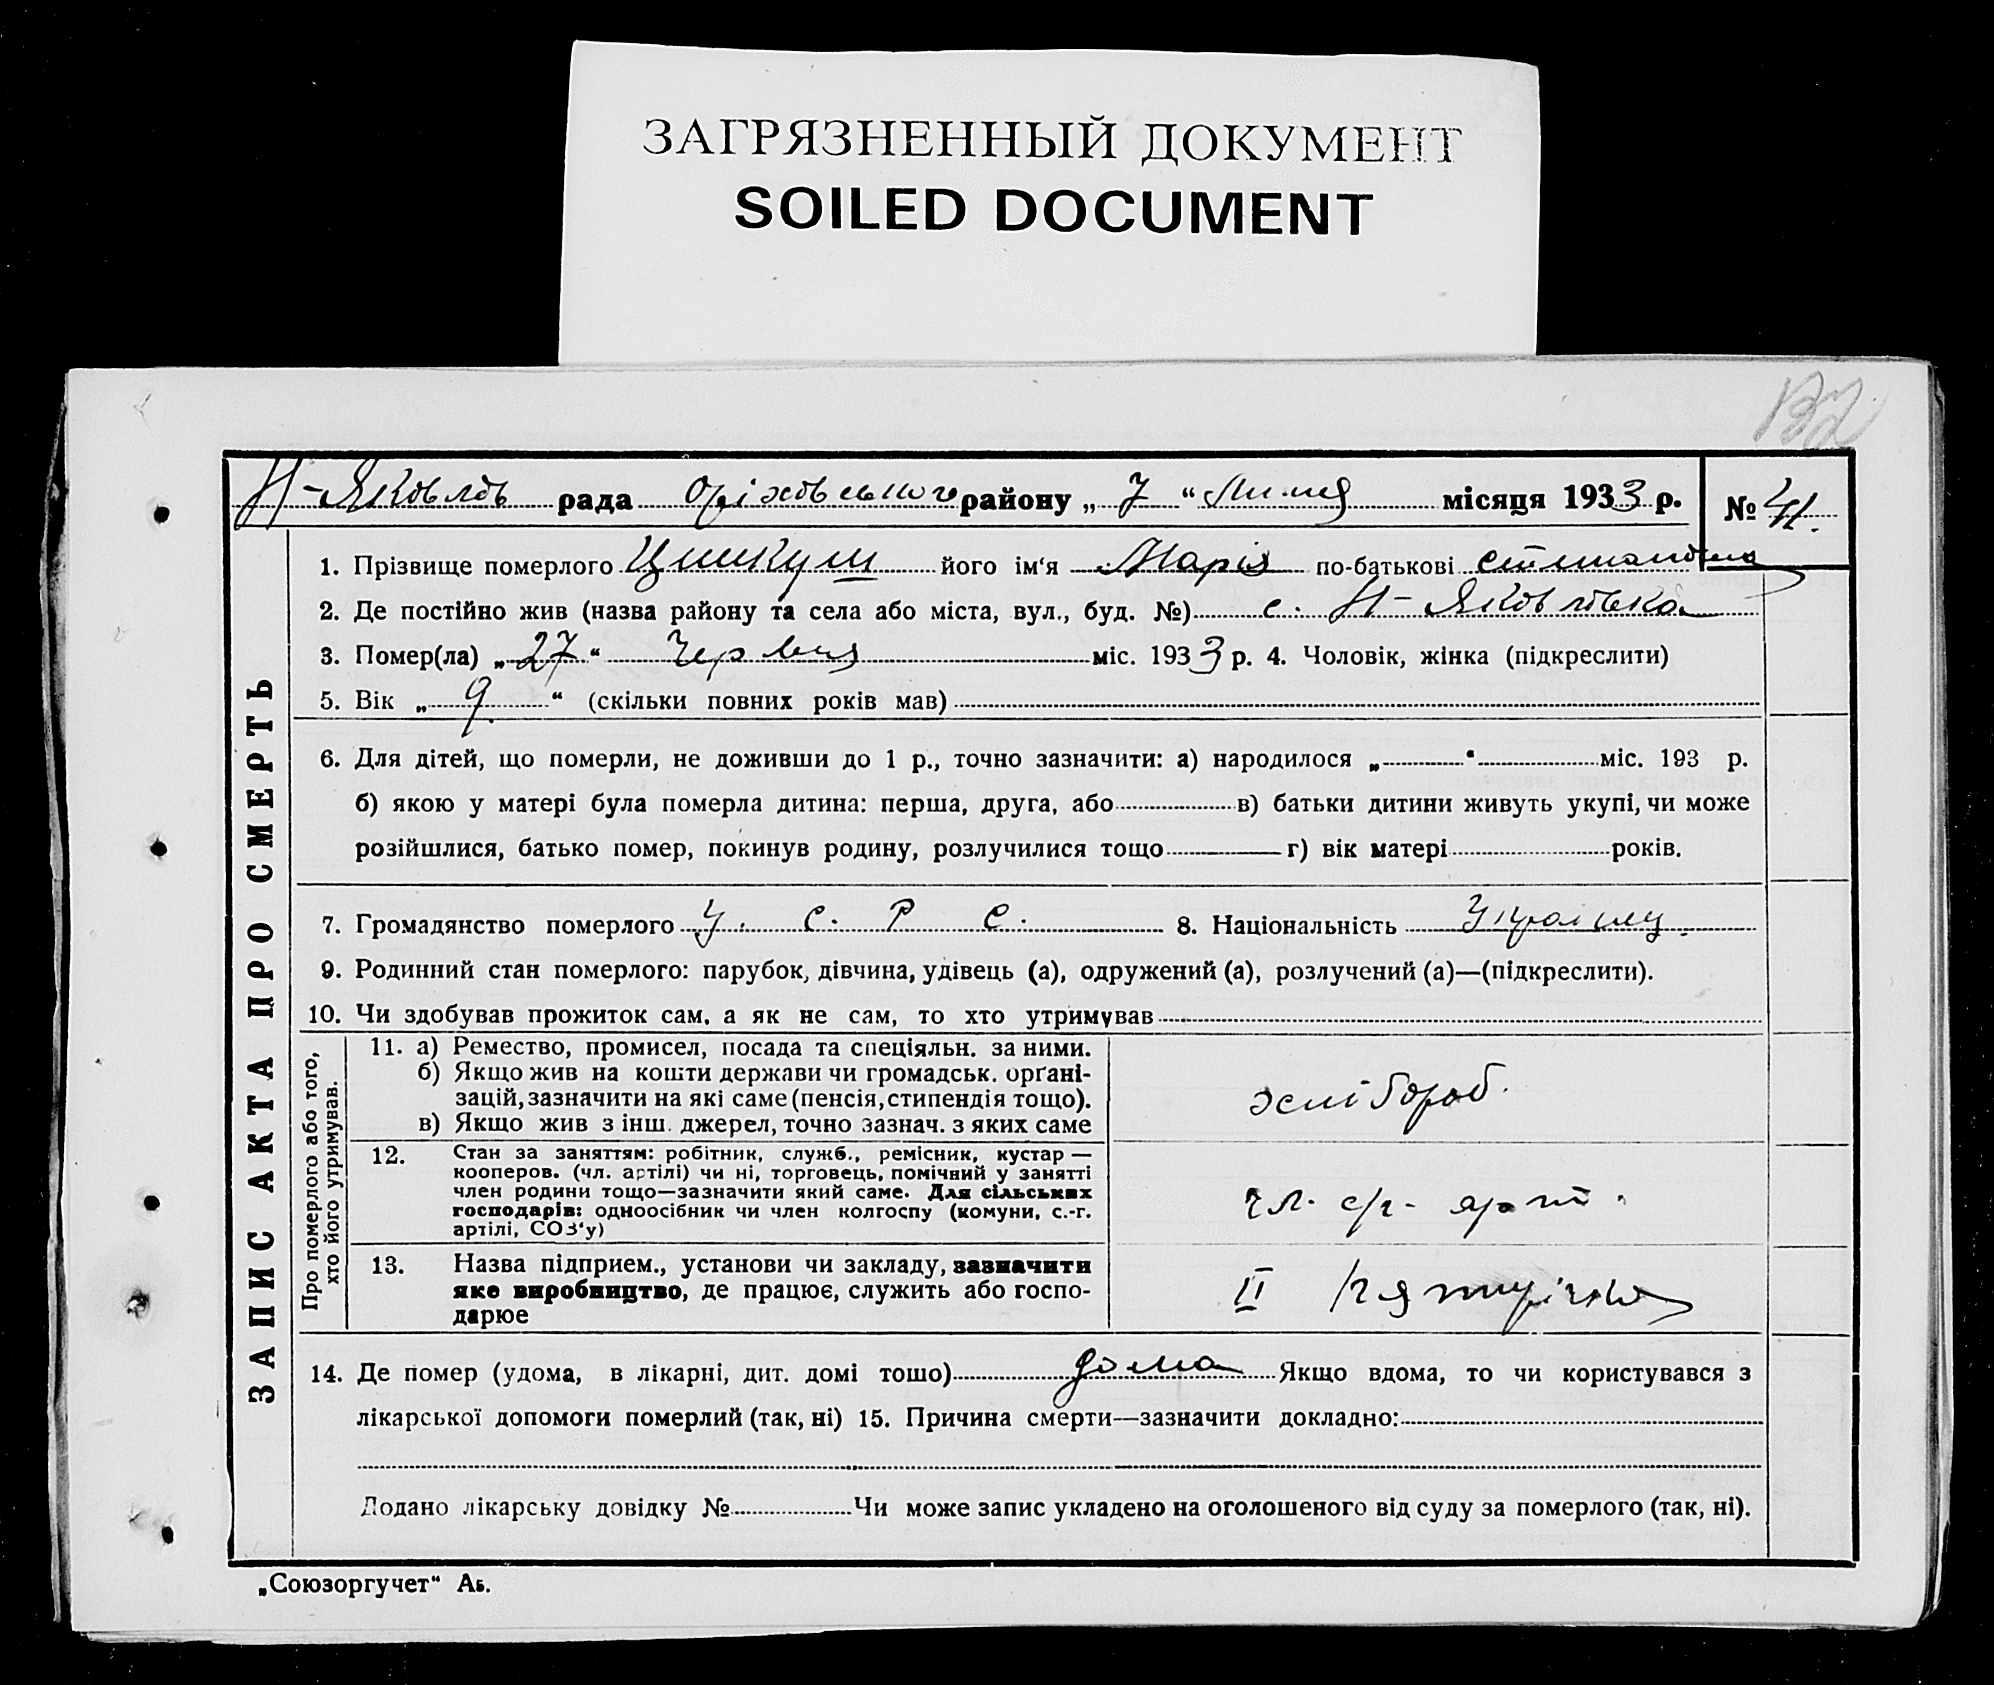 ЗАГРЯЗНЕННЫЙ ДОКУМЕНТ
SOILED DOCUMENT
132
Н-Яковлів рада Оріховського району „ 7 “ Липня місяця 1933 р. № 41.
ЗАПИС АКТА ПРО СМЕРТЬ
1. Прізвище померлого його ім‘я Марія по-батькові
2. Де постійно жив (назва району та села або міста, вул., буд. №) с. Н-Яковлівка
3. Помер(ла) „ 27 “ Червня міс. 1933 р. 4. Чоловік, жінка (підкреслити)
5. Вік „ 9 “ (скільки повних років мав)
6. Для дітей, що померли, не доживши до 1 р., точно зазначити: а) народилося „ “ міс. 193 р.
б) якою у матері була померла дитина: перша, друга, або в) батьки дитини живуть укупі, чи може
розійшлися, батько помер, покинув родину, розлучилися тощо г) вік матері років.
7. Громадянство померлого У. С. Р С. 8. Національність Україnец.
9. Родинний стан померлого: парубок, дівчина, удівець (а), одружений (а), розлучений (а)—(підкреслити).
10. Чи здобував прожиток сам, а як не сам, то хто утримував
Про померлого або того,
хто його утримував.
11. а) Ремество, промисел, посада та спеціяльн. за ними.
б) Якщо жив на кошти держави чи громадськ. орґані-
зацій, зазначити на які саме (пенсія, стипендія тощо).
в) Якщо жив з інш. джерел, точно зазнач. з яких саме
хлібороб.
12. Стан за заняттям: робітник, служб., ремісник, кустар —
кооперов. (чл. артілі) чи ні, торговець, помічний у занятті
член родини тощо—зазначити який саме. Для сільських
господарів: одноосібник чи член колгоспу (комуни, с.-г.
артілі, СОЗ‘у)
чл. с/г. арт.
13. Назва підприєм., установи чи закладу, зазначити
яке виробництво, де працює, служить або госпо-
дарює
II Пятирічка
14. Де помер (удома, в лікарні, дит. домі тошо) дома Якщо вдома, то чи користувався з
лікарської допомоги померлий (так, ні) 15. Причина смерти—зазначити докладно:
Додано лікарську довідку № Чи може запис укладено на оголошеного від суду за померлого (так, ні).
„Союзоргучет“ Аб.